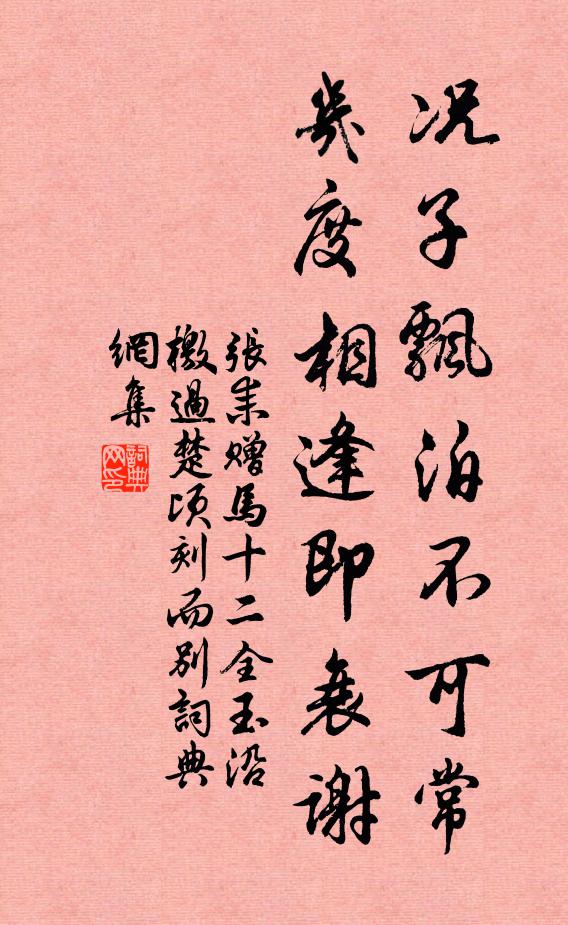 况子飄泊不可常
幾度相逢即衰謝
張耒贈馬十二全玉沿
檄過楚頃刻而別詞典
網集
詞典
网印